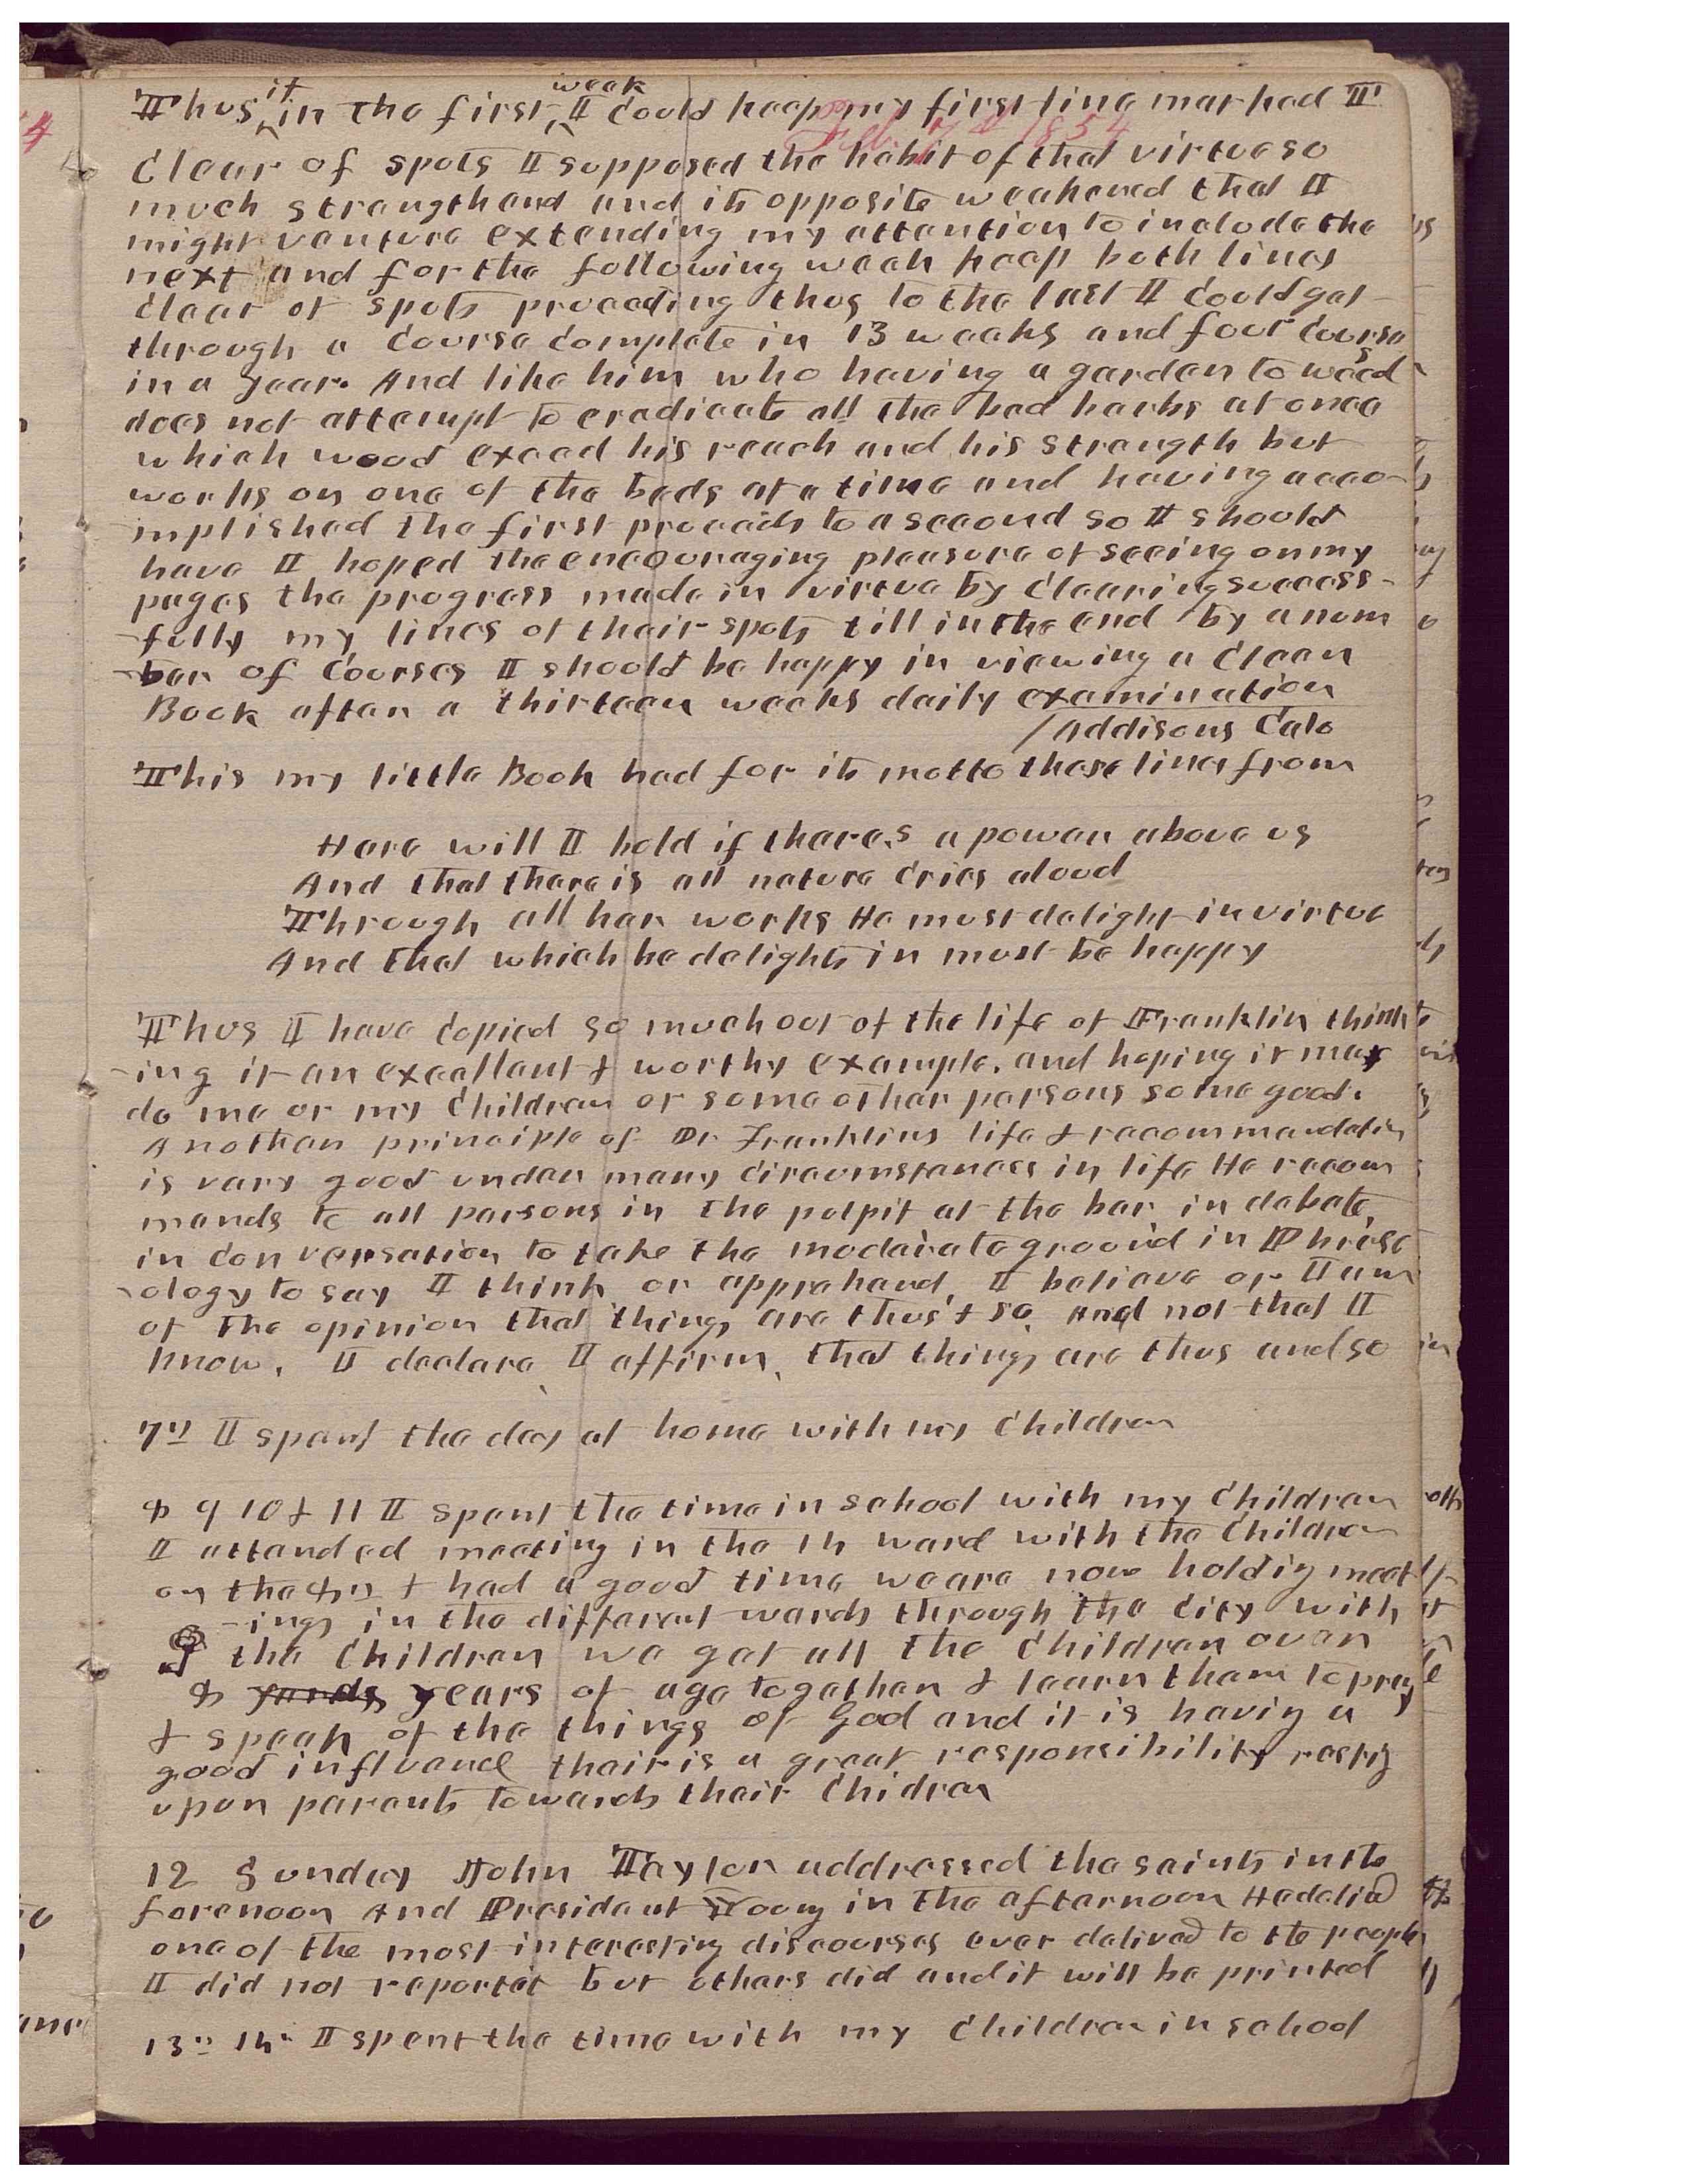 Feb. 7th 1854
Thus if in the first week I could keep my first line marked T
Clear of spots I supposed the habit of that virtue so
much strengthend and its opposite weakened that I
might venture extending my attention to include the
next and for the following week keep both lines
clear of spots proceeding thus to the last I could get
through a course complete in 13 weeks and four courses
in a year. And like him who having a garden to weed
does not attempt to eradicate all the bad herbs at once
which would exceed his reach and his strength but
works on one of the beds at a time and having acco-
mplished the first proceeds to a second so I should
have I hoped the encouraging pleasure of seeing on my
pages the progress made in virtue by clearing success-
-fully my lines of their spots till in the end by a num
-ber of Courses I should be happy in viewing a clean
Book after a thirteen weeks daily examination
/Addisons Cato
This my little Book had for its motto these lines from
Here will I hold if theres a power above us
And that there is all nature cries aloud
Through all her works He must delight in virtue
And that which he delights in must be happy
Thus I have Copied so much out of the life of Franklin think
-ing it an excellent & worthy example. and hoping it may
do me or my Children or some other persons some good.
Another principle of Dr Franklins life & recommendation
is very good under many circumstances in life He recom
mends to all persons in the pulpit at the bar in debate,
in conversation to take the moderate ground in Phrase
-ology to say I think or apprehend, I believe or I am
of the opinion that things are thus & so. And not that I
know, I declare, I affirm, that things are thus and so
7th I spent the day at home with my Children
8 9 10 & 11 I spent the time in school with my Children
I attended meeting in the 14 ward with the Children
on the 8th & had a good time we are now holdig meet
-ings in the different wards through the city with
the Children we get all the Children over
8 years of age together & learn them to pray
& speak of the things of God and it is havig a
good influence their is a great responsibility restig
upon parents towards their Chidren
12 Sunday John Taylor addressed the saints in the
forenoon And President Young in the afternoon He delied
one of the most interesting discourses ever delived to the people
I did not report it but others did and it will be printed
13th 14th I spent the time with my Children in school